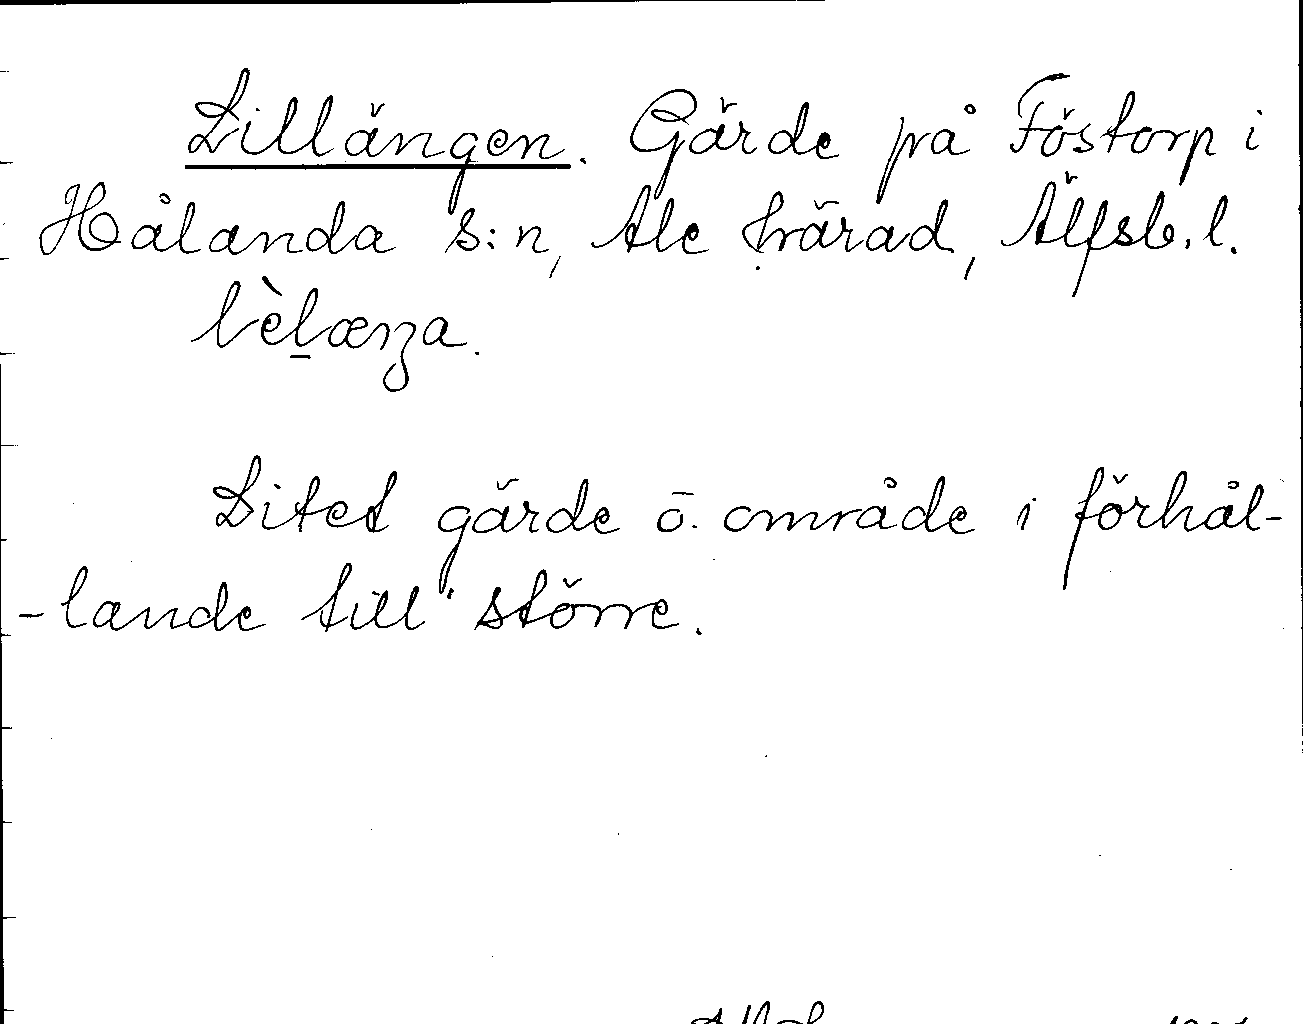 Lillängen. Gärde på Föstorp i
Hålanda s:n, Ale härad, Älfsb. l.
lèḻæŋa.
Litet gärde o. område i förhål-
-lande till större.